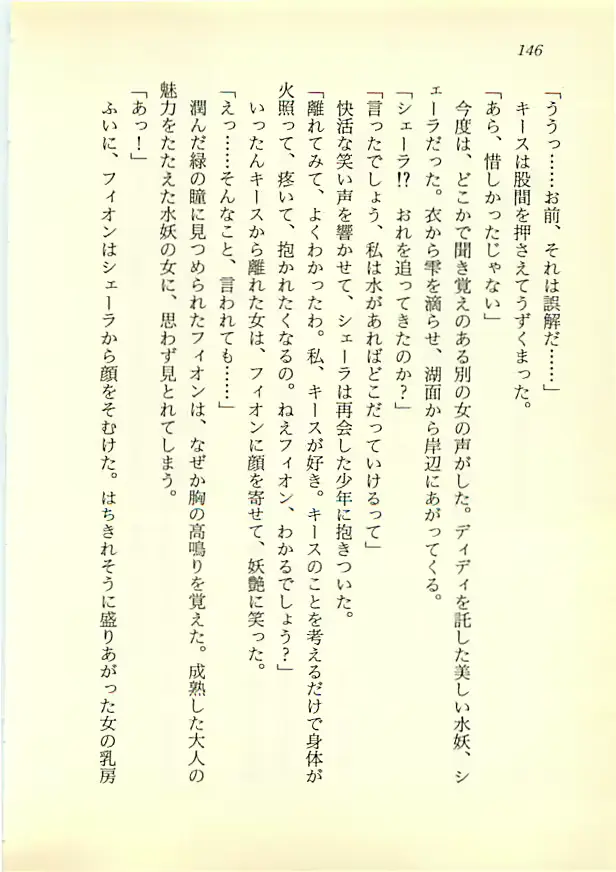 146
「ううっ……お前、それは誤解だ……」
キースは股間を押さえてうずくまった。
「あら、惜しかったじゃない」
今度は、どこかで聞き覚えのある別の女の声がした。ディディを託した美しい水妖、シ
ェーラだった。衣から雫を滴らせ、湖面から岸辺にあがってくる。
「シェーラ!? おれを追ってきたのか?」
「言ったでしょう、私は水があればどこだっていけるって」
快活な笑い声を響かせて、シェーラは再会した少年に抱きついた。
「離れてみて、よくわかったわ。私、キースが好き。キースのことを考えるだけで身体が
火照って、疼いて、抱かれたくなるの。ねえフィオン、わかるでしょう?」
いったんキースから離れた女は、フィオンに顔を寄せて、妖艶に笑った。
「えっ……そんなこと、言われても……」
潤んだ緑の瞳に見つめられたフィオンは、なぜか胸の高鳴りを覚えた。成熟した大人の
魅力をたたえた水妖の女に、思わず見とれてしまう。
「あっ!」
ふいに、フィオンはシェーラから顔をそむけた。はちきれそうに盛りあがった女の乳房